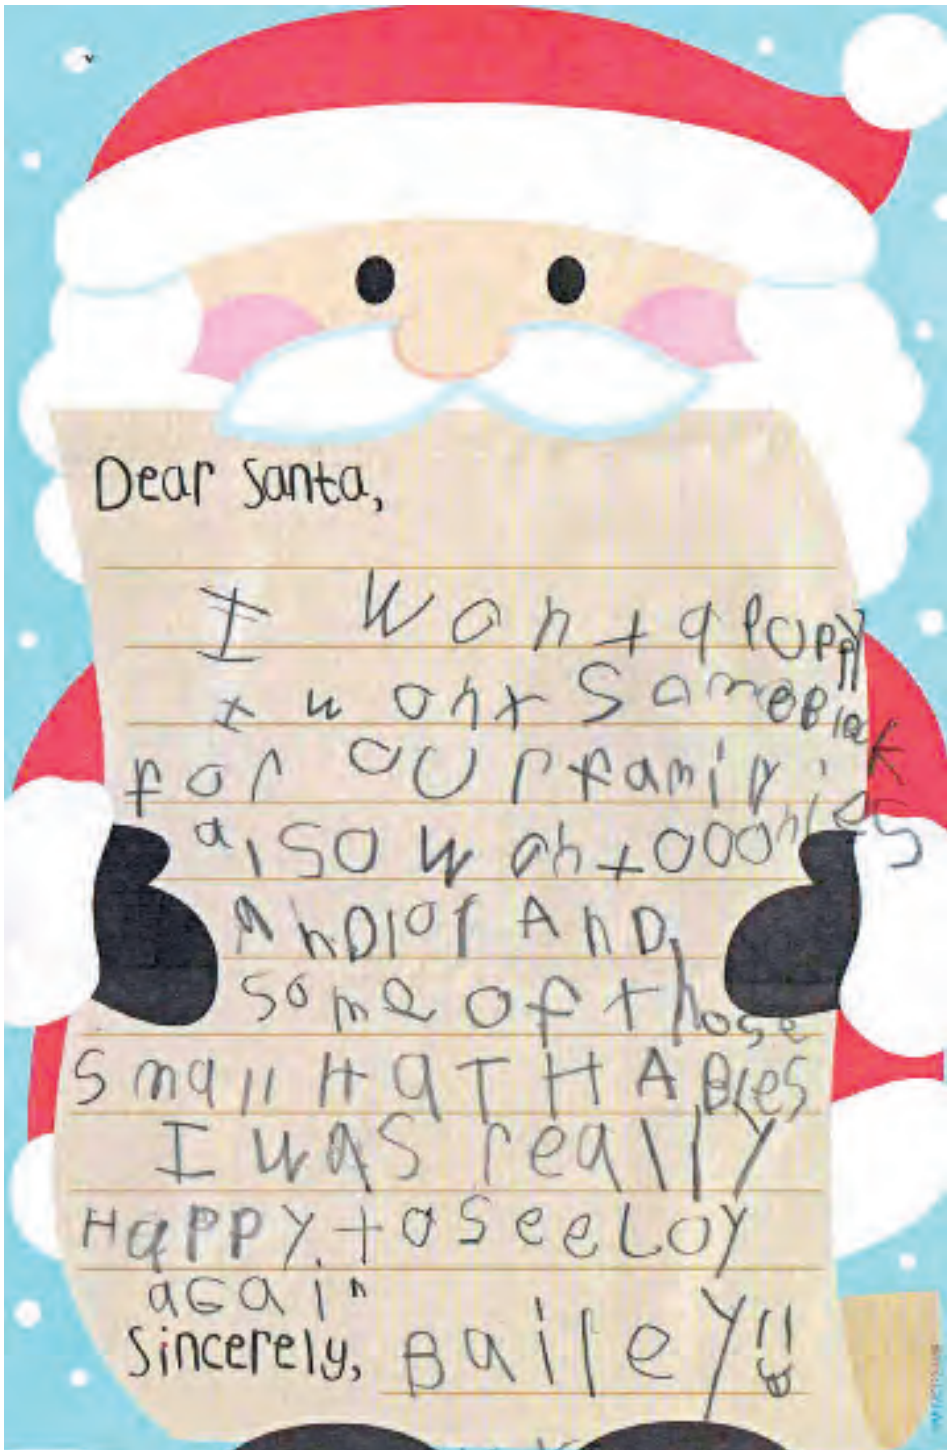 Dear Santa,
I Want a PUPPY
I want Some Black
for OUr family.
also want OOOnies
AnDlor AnD
some of those
Small HaTHABles
I was really
HaPPY to see Loy
aGain
Sincerely, Bailey!!